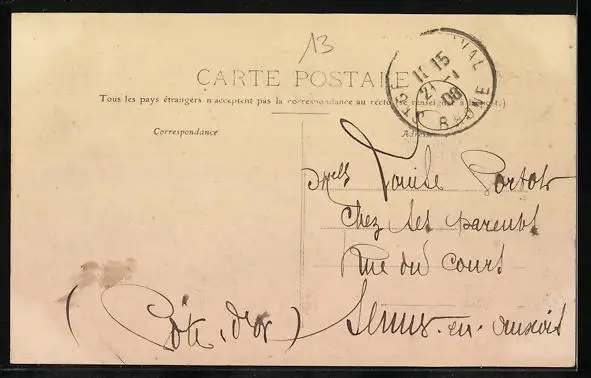 13
CARTE POSTALE
Tous les pays étrangers n'acceptent pas la correspondance au recto (se renseigner à la poste)
Correspondance
Adresse
15 15
21
08
RHONE
Melle Louise Portot
Chez ses parents
Rue du Court
Semur-en-Auxois
(Côte d'or)